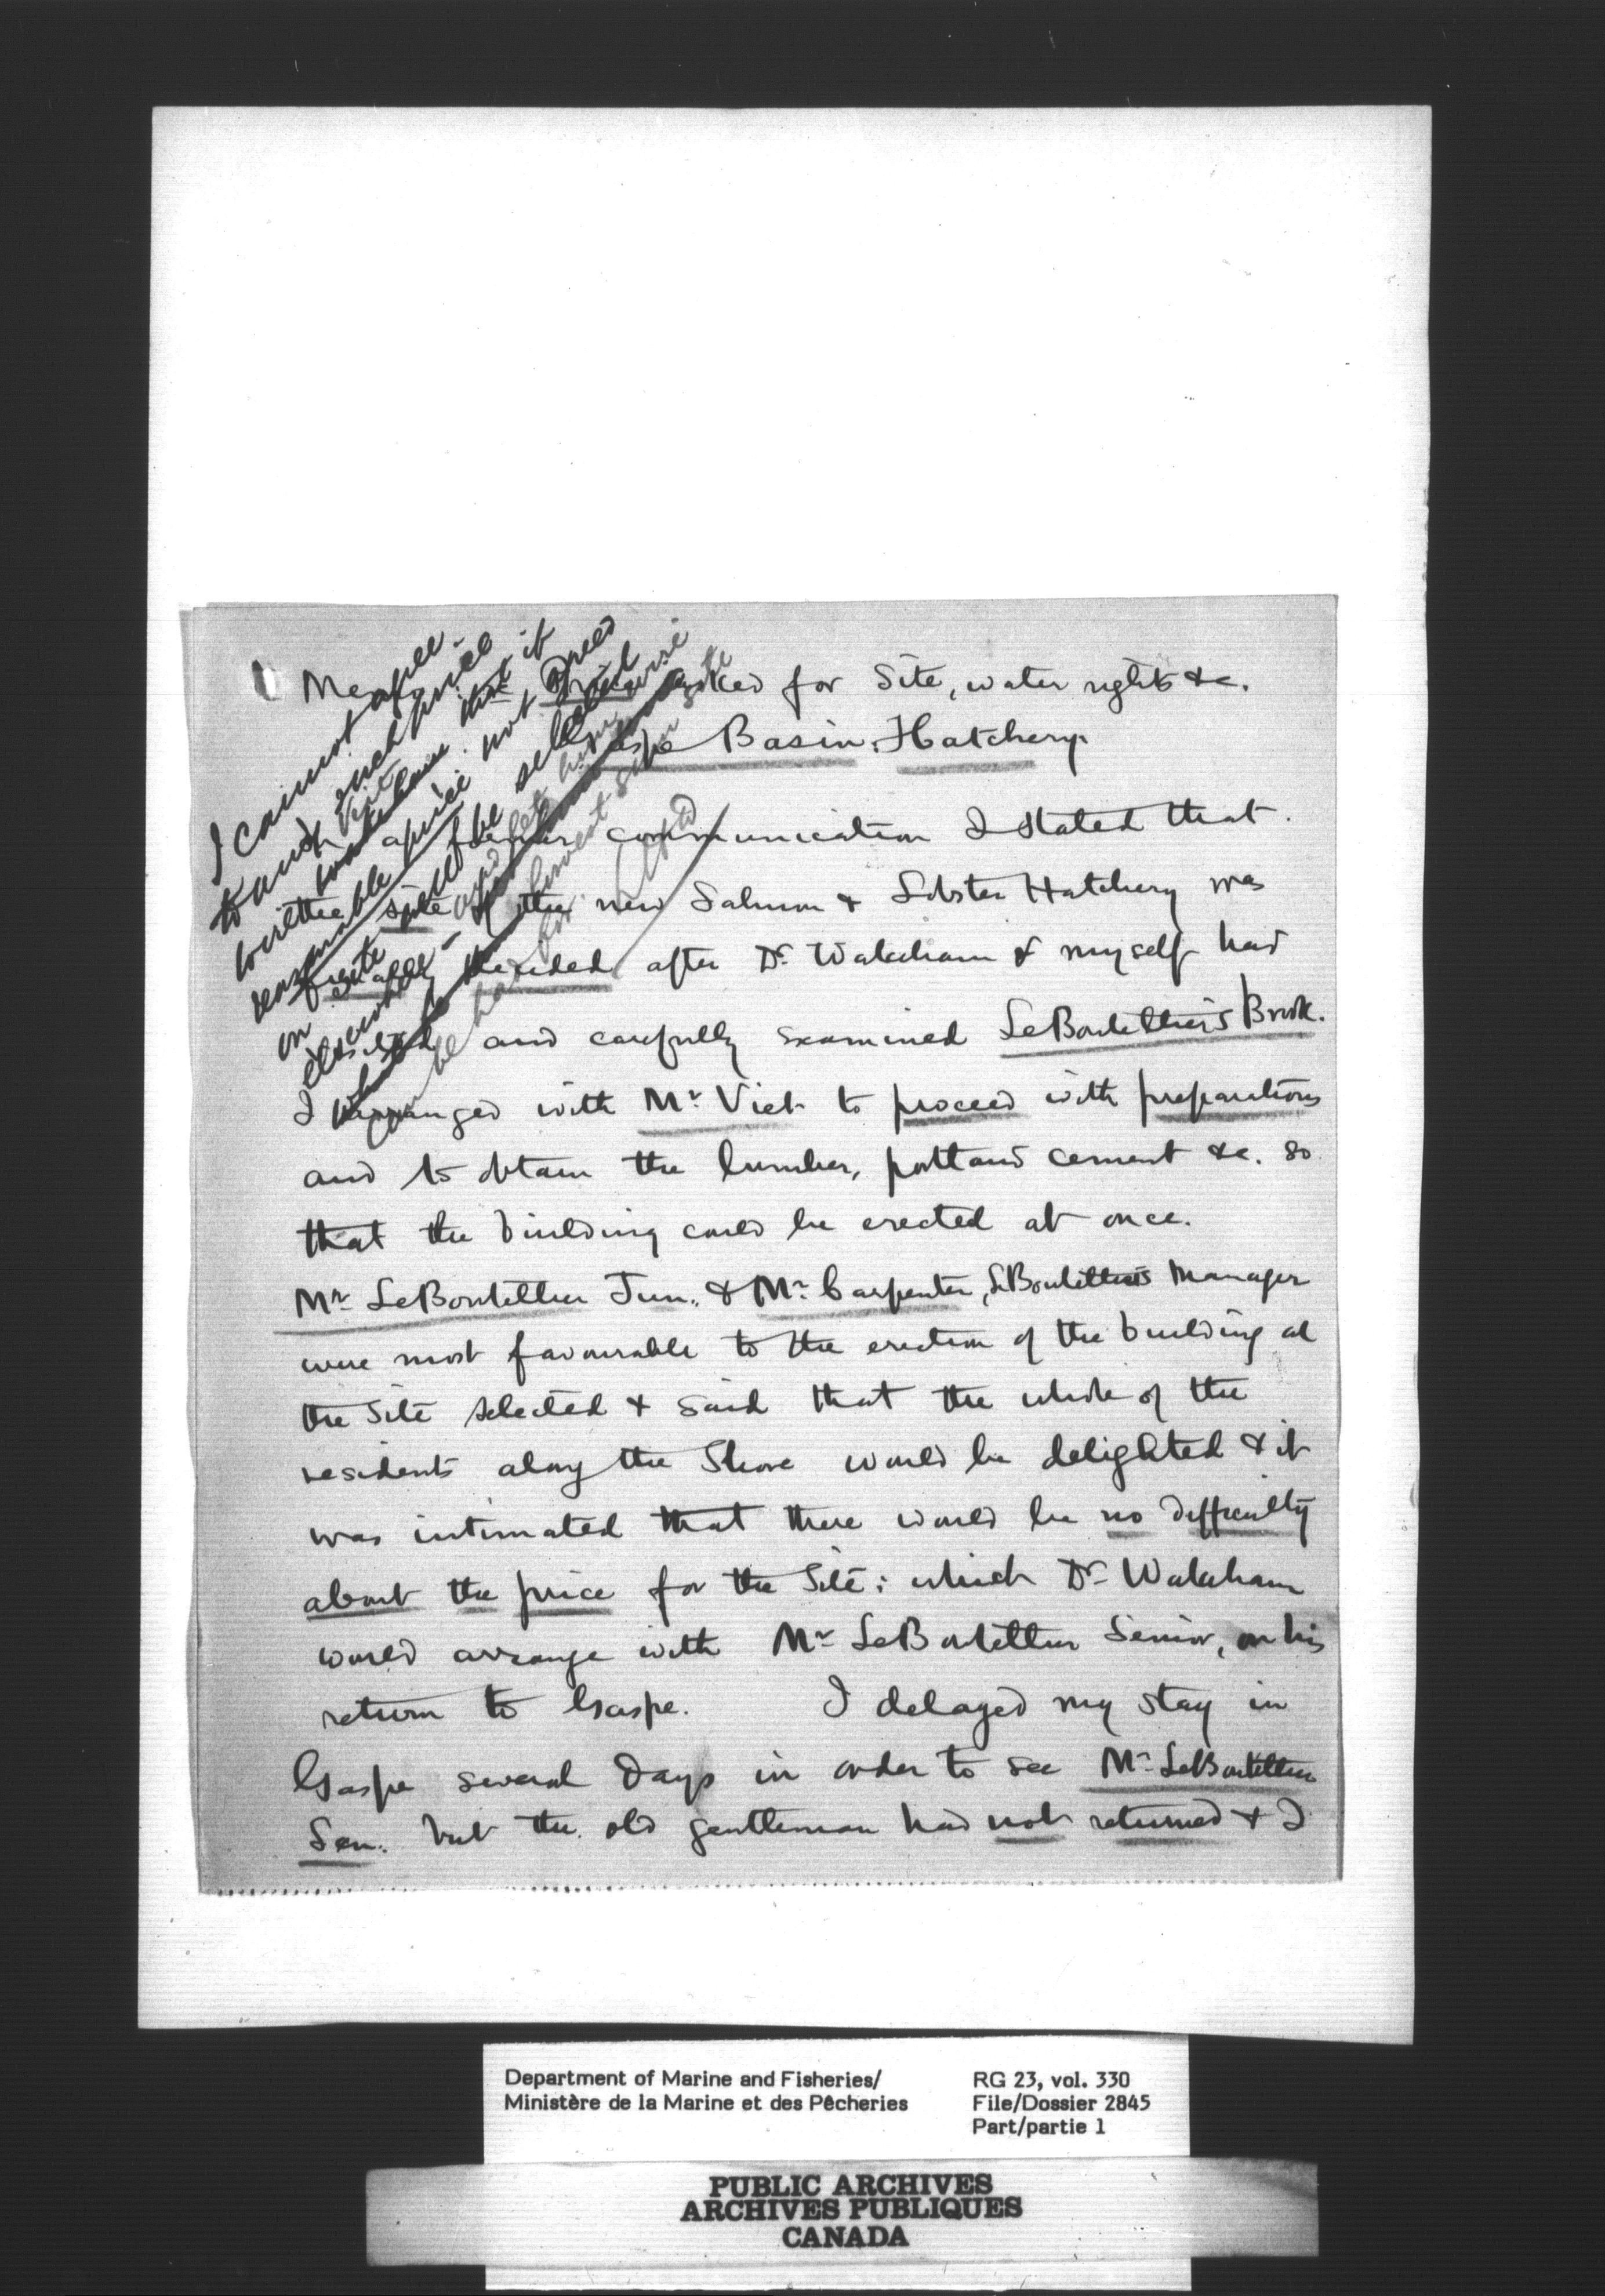 Me
asked for Site, water rights &c.
Gaspe Basin Hatchery.
communication I stated that
site of the new Salmon & Lobster Hatchery was
decided after Dr. Wakeham & myself had
and carefully examined LeBoutillier's Brook.
I arranged with Mr. Viet to proceed with preparations
and to obtain the lumber, portland cement &c. so
that the building could be erected at once.
Mr LeBoutillier Jun., & Mr. Carpenter, LeBoutillier's Manager
were most favourable to the erection of the building at
the Site selected & said that the whole of the
residents along the Shore would be delighted & it
was intimated that there would be no difficulty
about the price for the Site; which Dr. Wakeham
would arrange with Mr LeBoutillier Senior, on his
return to Gaspe. I delayed my stay in
Gaspe several days in order to see Mr. LeBoutillier
Sen. but the old gentleman had not returned & I
I cannot agree
to such price
reasonable price
on site
elsewhere
can be had for
Department of Marine and Fisheries/
Ministère de la Marine et des Pêcheries
RG 23, vol. 330
File/Dossier 2845
Part/partie 1
PUBLIC ARCHIVES
ARCHIVES PUBLIQUES
CANADA